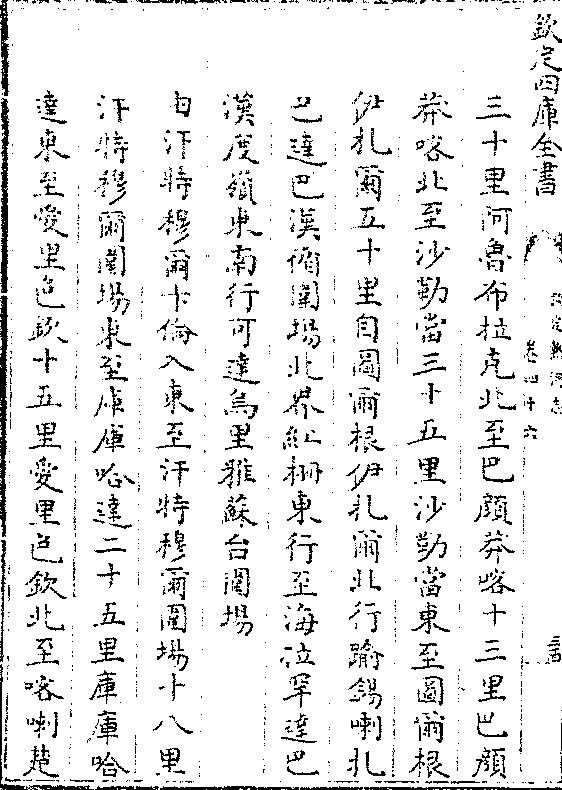 欽定四庫全書
欽定熱河志
卷四十六
三十里阿魯布拉克北至巴顔莽喀十三里巴顔
莽喀北至沙勒當三十五里沙勒當東至圖爾根
伊扎爾五十里自圖爾根伊扎爾北行踰錫喇扎
巴達巴漢循圍場北界紅柵東行至海拉罕達巴
漢度嶺東南行可達烏里雅蘇台圍場
由汗特穆爾卡倫入東至汗特穆爾圍場十八里
汗特穆爾圍場東至庫庫哈達二十五里庫庫哈
達東至愛里色欽十五里愛里色欽北至喀喇楚